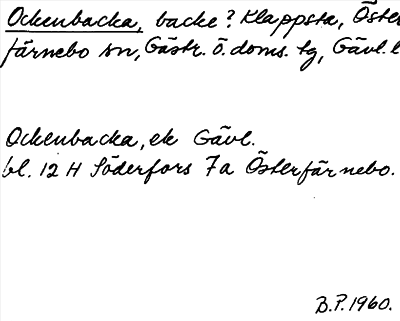 Ockenbacka, backe? Klappsta, Öster
färnebo sn, Gästr. ö. doms. tg, Gävl. l
Ockenbacka, ek Gävl.
bl. 12 H Söderfors 7a Österfärnebo.
B.P. 1960.